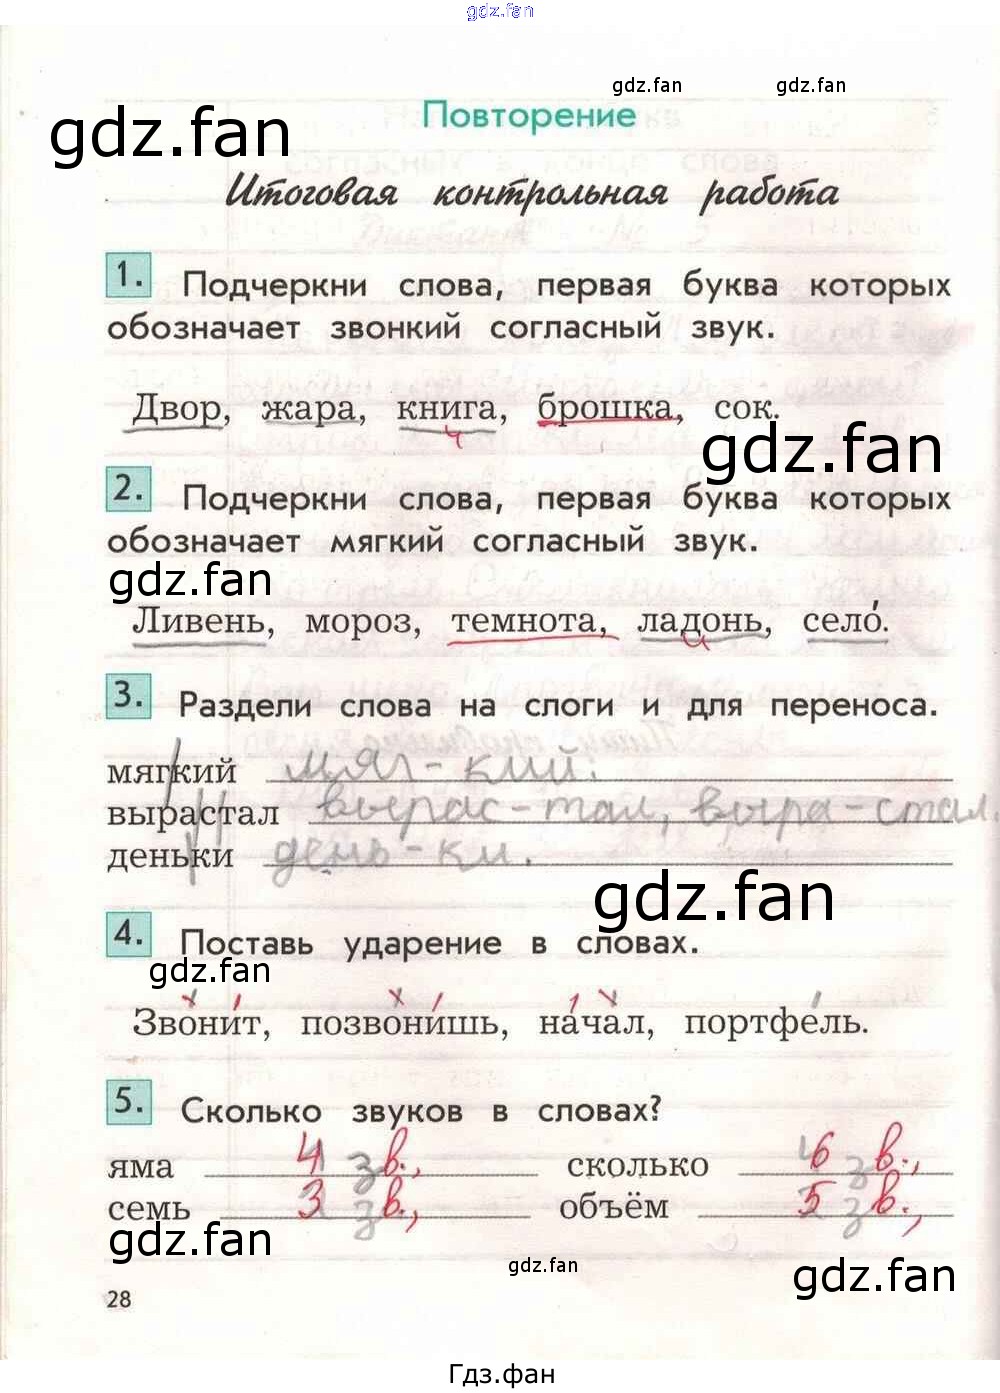 gdz.fan
gdz.fan gdz.fan
Повторение
gdz.fan
Итоговая контрольная работа
1. Подчеркни слова, первая буква которых
обозначает звонкий согласный звук.
Двор, жара, книга, брошка, сок.
gdz.fan
2. Подчеркни слова, первая буква которых
обозначает мягкий согласный звук.
gdz.fan
Ливень, мороз, темнота, ладонь, село́.
3. Раздели слова на слоги и для переноса.
мягкий мяг-кий.
вырастал вырас-тал, выра-стал.
деньки день-ки.
gdz.fan
4. Поставь ударение в словах.
gdz.fan
Звони́т, позвони́шь, на́чал, портфе́ль.
5. Сколько звуков в словах?
яма 4 зв., сколько 6 зв.,
семь 3 зв., объём 5 зв.,
gdz.fan
gdz.fan
gdz.fan
28
Гдз.фан